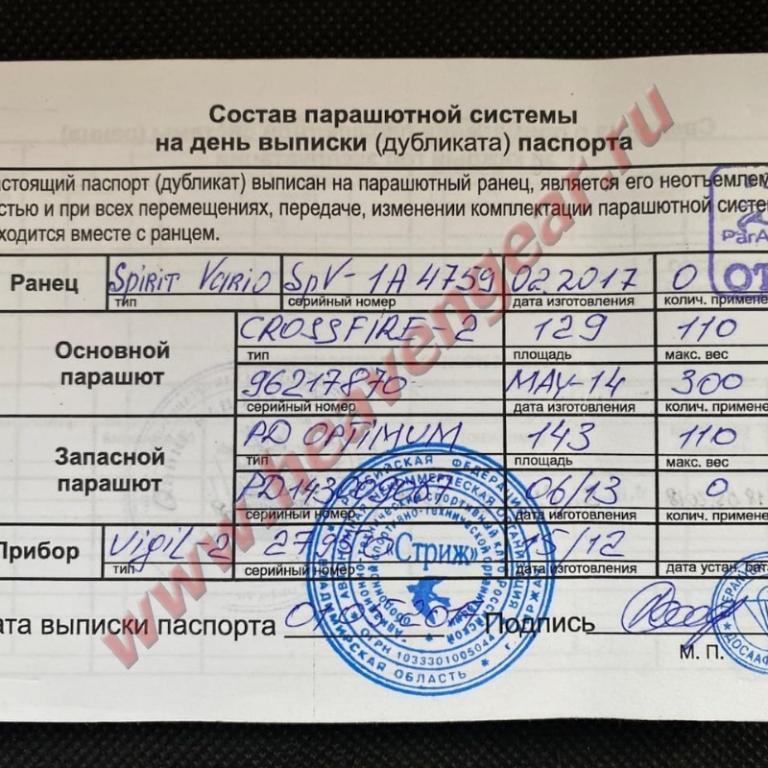 Состав парашютной системы
на день выписки (дубликата) паспорта
стоящий паспорт (дубликат) выписан на парашютный ранец, является его неотъемлем
стью и при всех перемещениях, передаче, изменении комплектации парашютной систе
ходится вместе с ранцем.
ParA
ОТ
Ранец Spirit Vario SpV-1A 4759 02.2017 0
тип серийный номер дата изготовления колич. примене
Основной парашют CROSSFIRE-2 129 110
тип площадь макс. вес
96217870 MAY-14 300
серийный номер дата изготовления колич. примене
Запасной парашют PD OPTIMUM 143 110
тип площадь макс. вес
06/13 0
серийный номер дата изготовления колич. примене
Прибор Vigil 2 15/12
тип серийный номер дата изготовления дата устан. бат
ата выписки паспорта Подпись
М. П.
«Стриж»
РОССИЙСКАЯ ФЕДЕРАЦИЯ
ОГРН 1033301005044
ВЛАДИМИРСКАЯ ОБЛАСТЬ
ДОСААФ
www.heavengear.ru